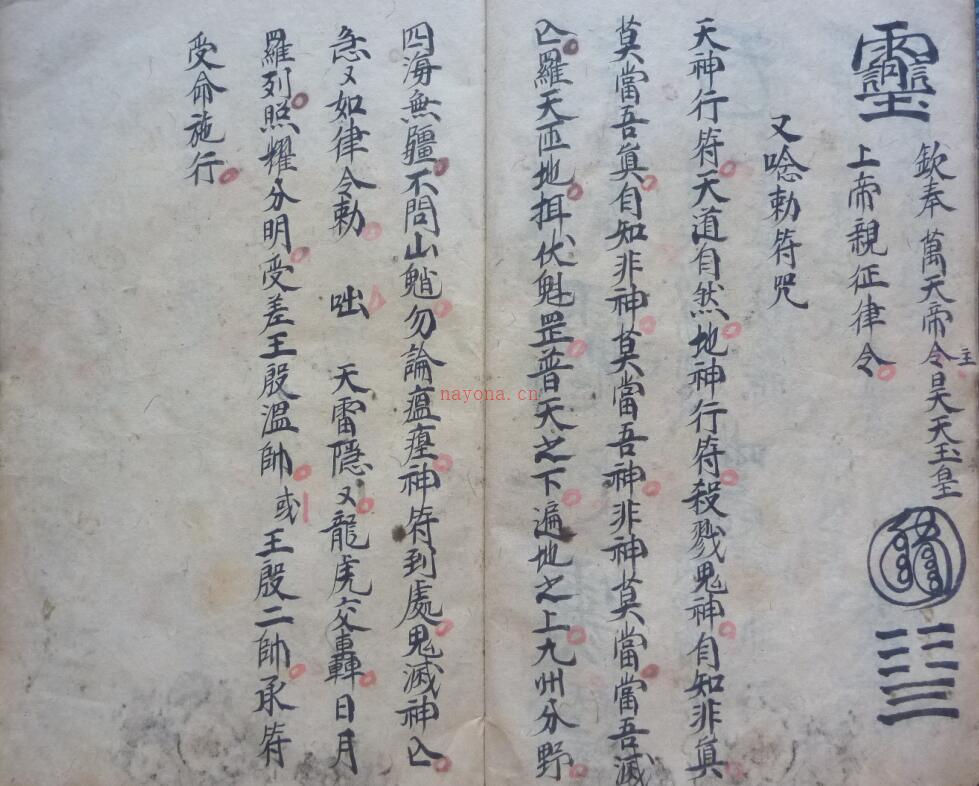 靈
欽奉萬天帝主令昊天玉皇
上帝親征律令
又唸勅符咒
天神行符天道自然地神行符殺戮鬼神自知非真
莫當吾真自知非神莫當吾神非神莫當當吾滅
亾羅天匝地揖伏魁罡普天之下遍地之上九州分野
四海無疆不問山魈勿論瘟𤶣神符到處鬼滅神亾
急又如律令勅 咄 天雷隱又龍虎交轟日月
羅列照耀分明受差王殷溫帥或王殷二帥承符
受命施行
nayona.cn